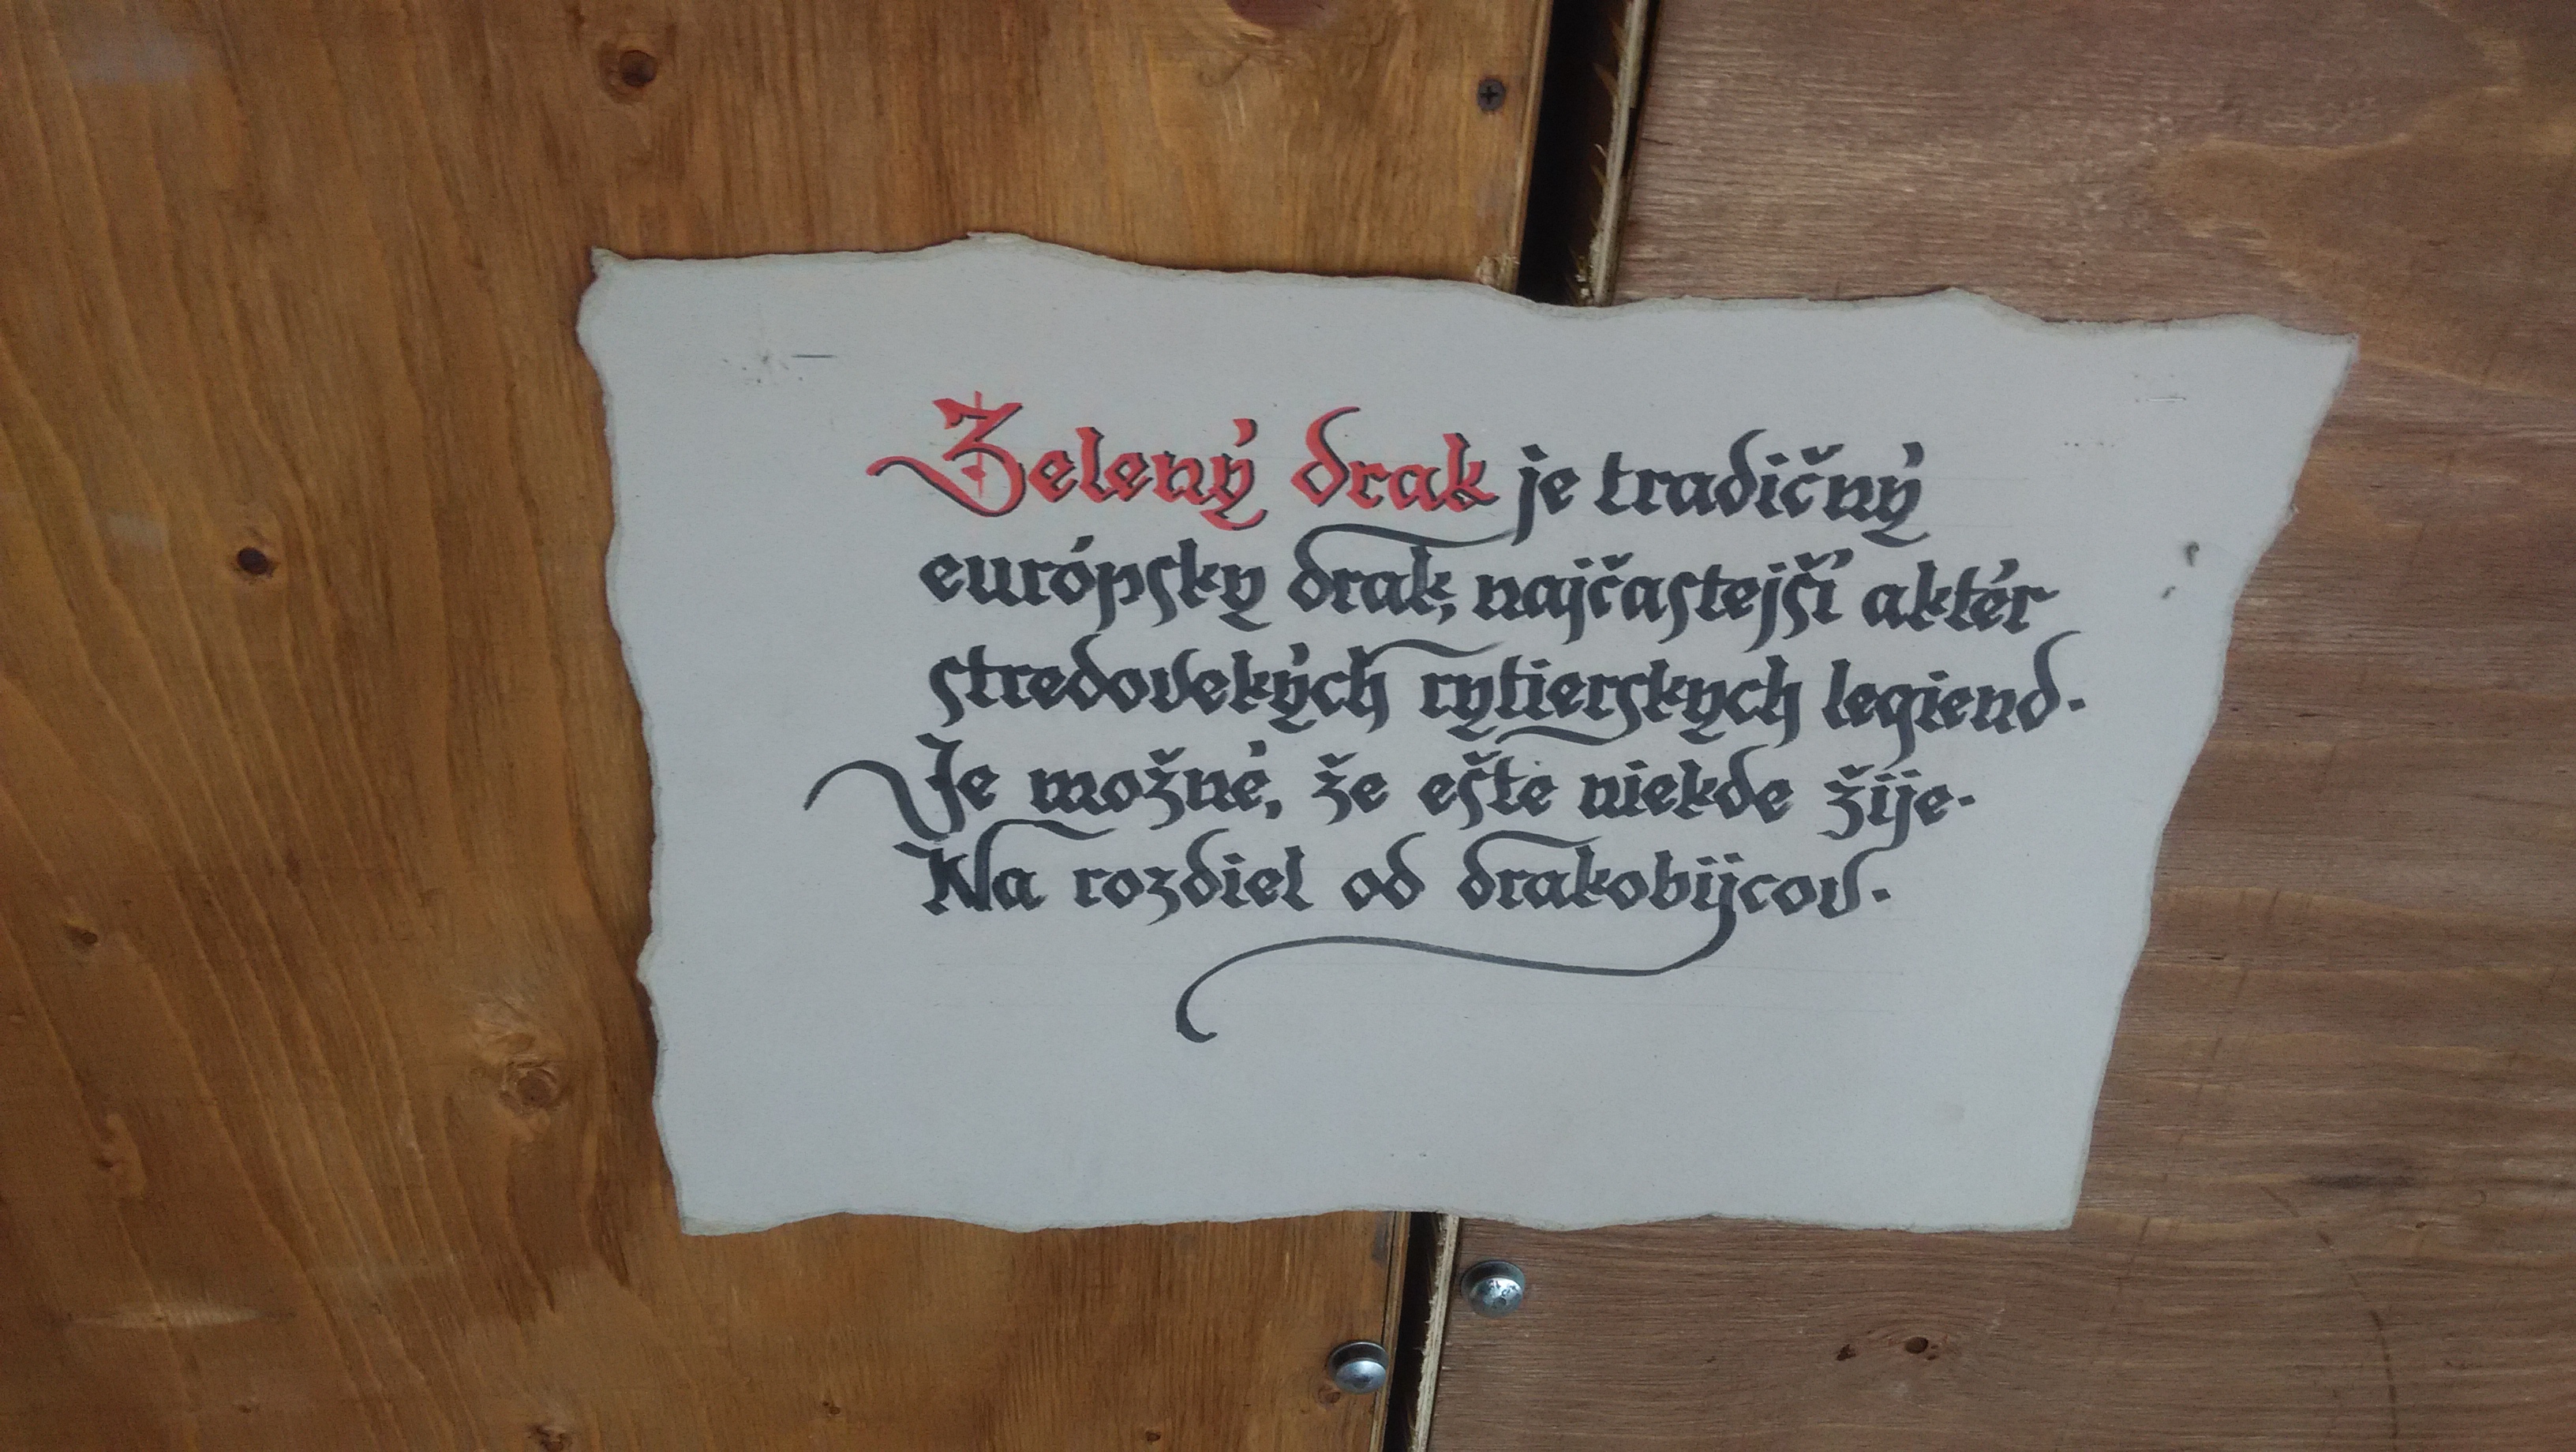 Zelený drak je tradičný
európsky drak, najčastejší aktér
stredovekých rytierskych legiend.
Je možné, že ešte niekde žije.
Na rozdiel od drakobijcov.